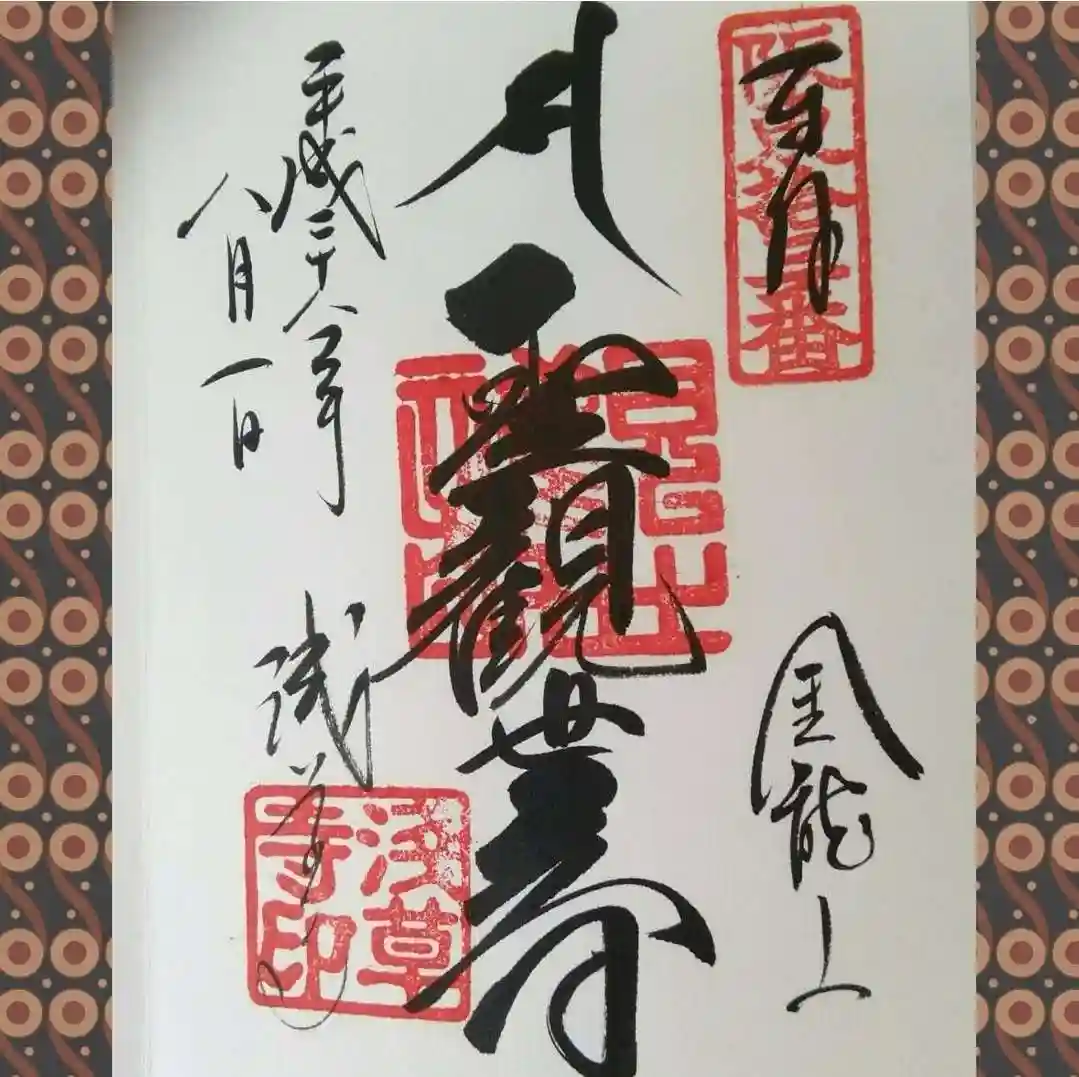 奉拝
阪東拾三番
金龍山
聖觀世音
平成二十八年
八月一日
浅草寺
浅草
寺印